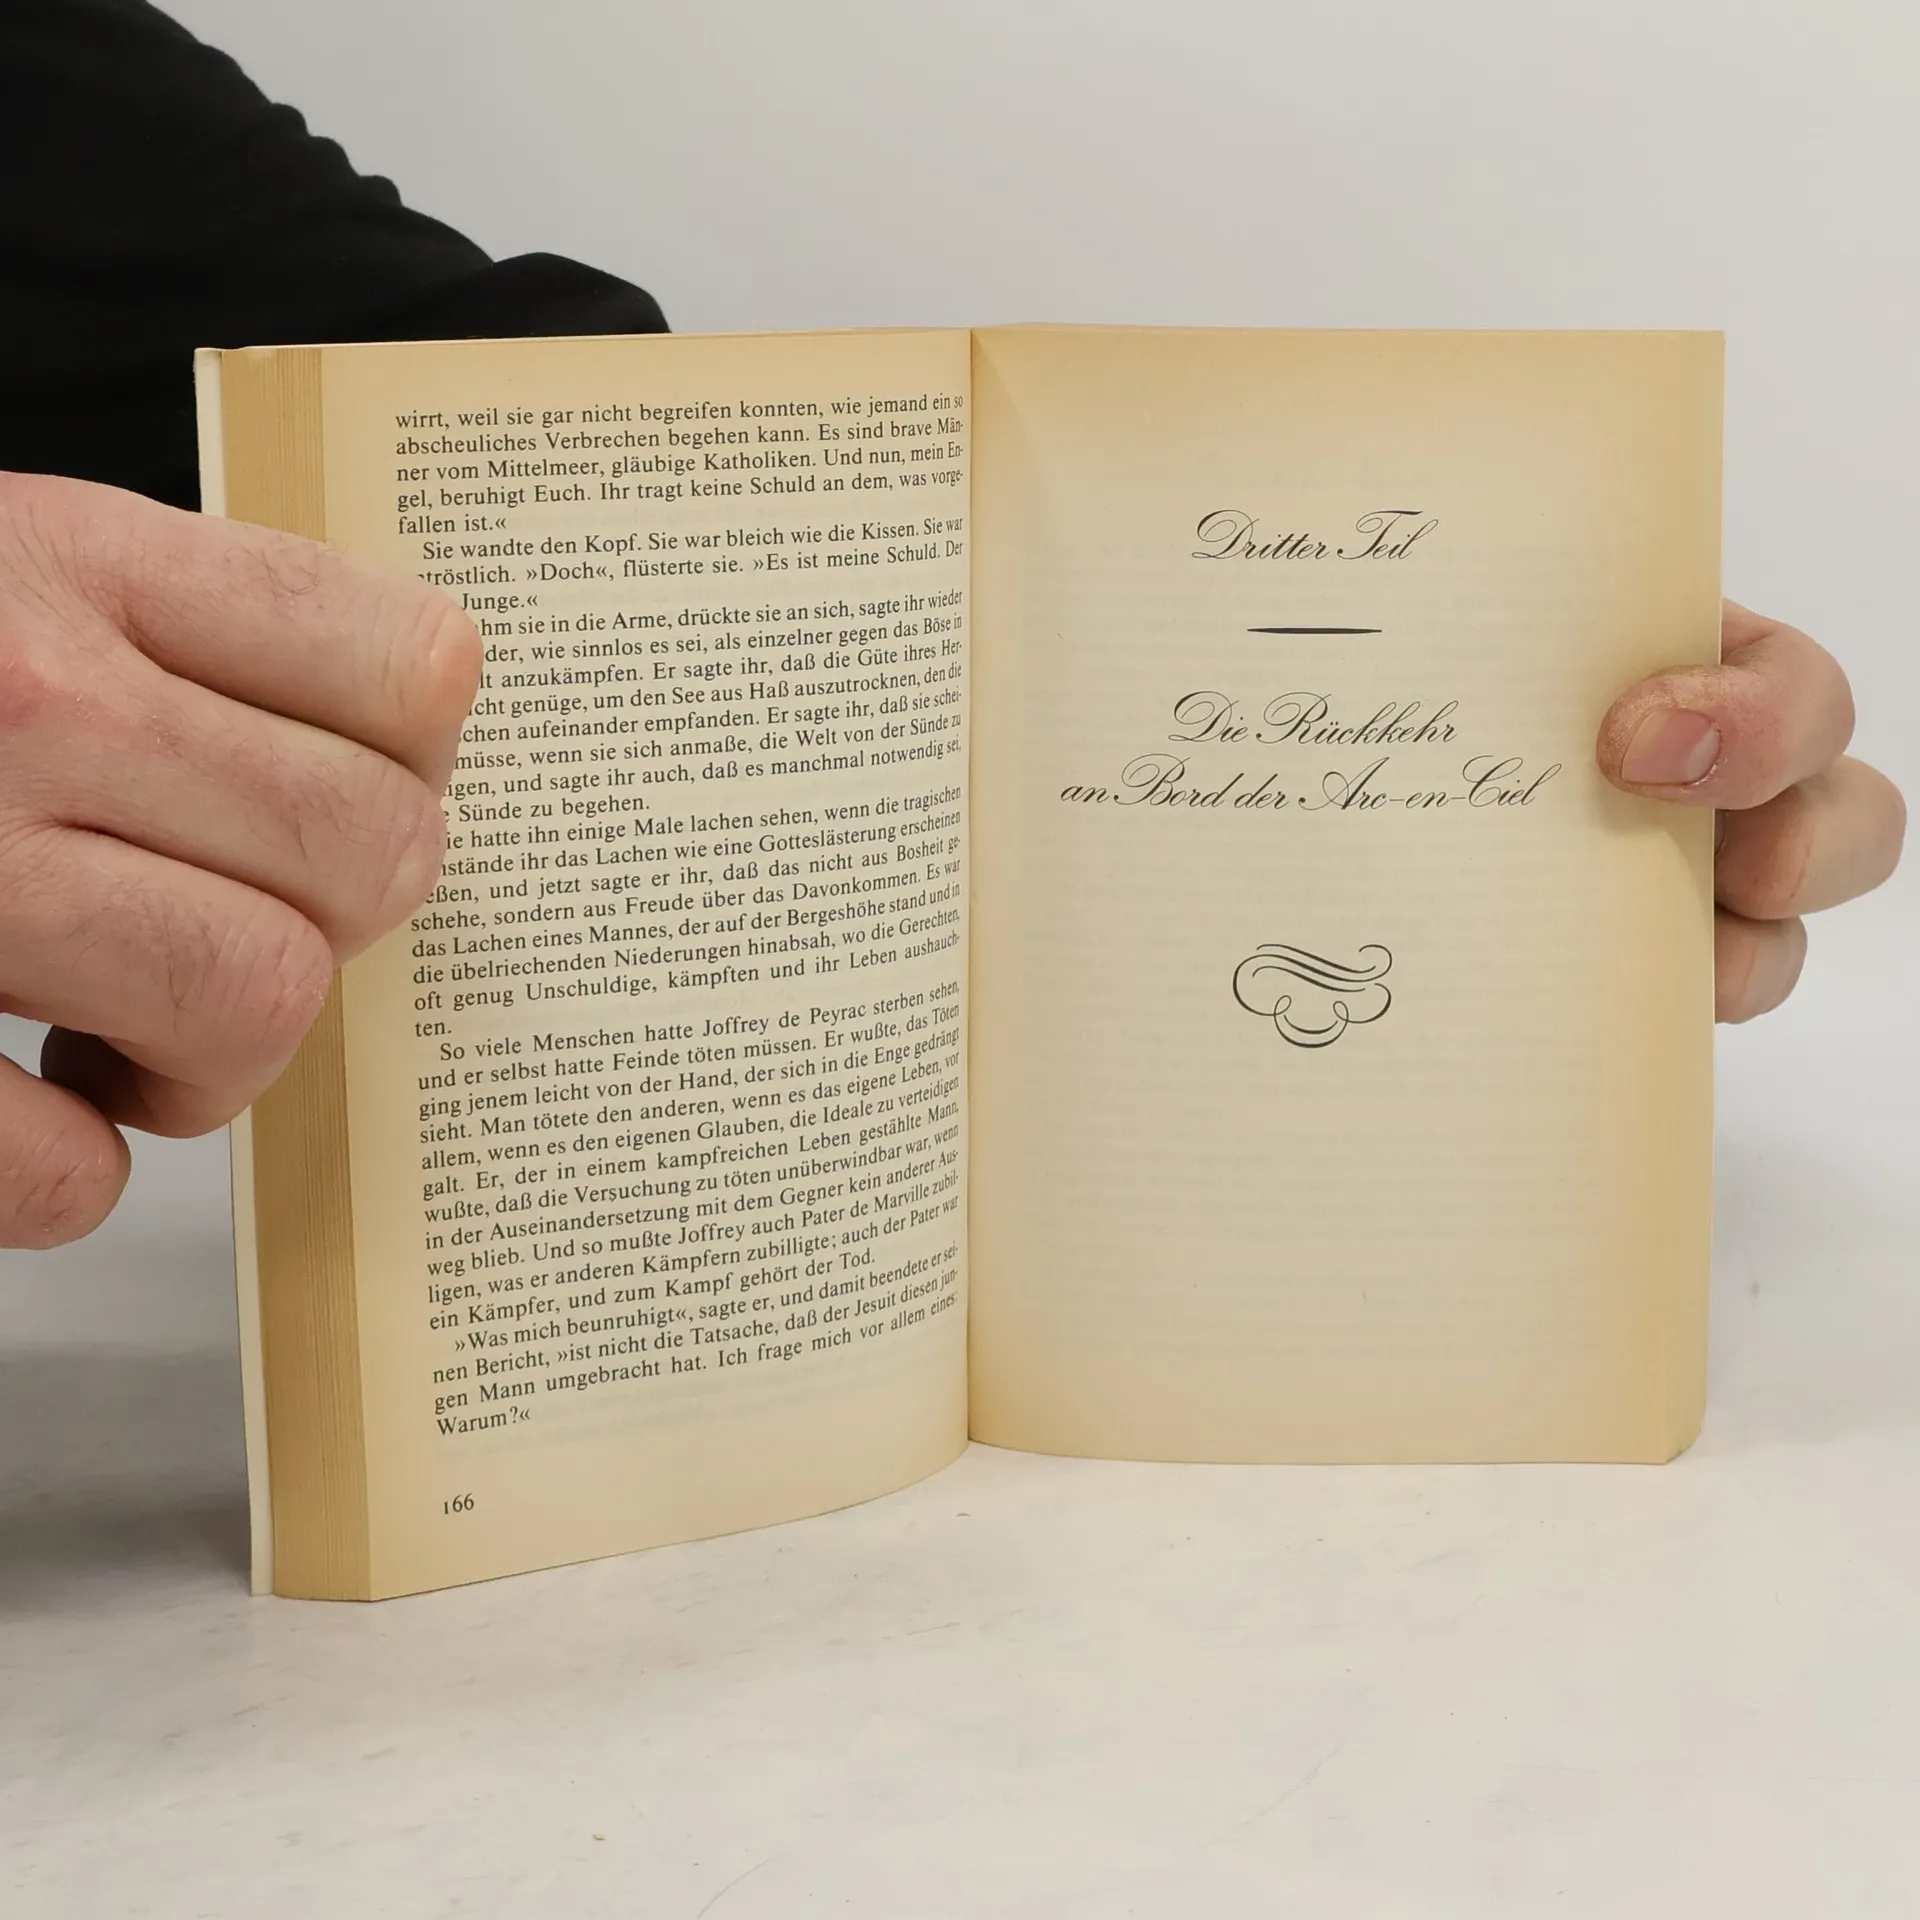 wirrt, weil sie gar nicht begreifen konnten, wie jemand ein so
abscheuliches Verbrechen begehen kann. Es sind brave Män-
ner vom Mittelmeer, gläubige Katholiken. Und nun, mein En-
gel, beruhigt Euch. Ihr tragt keine Schuld an dem, was vorge-
fallen ist.«
Sie wandte den Kopf. Sie war bleich wie die Kissen. Sie war
tröstlich. »Doch«, flüsterte sie. »Es ist meine Schuld. Der
Junge.«
hm sie in die Arme, drückte sie an sich, sagte ihr wieder
der, wie sinnlos es sei, als einzelner gegen das Böse in
lt anzukämpfen. Er sagte ihr, daß die Güte ihres Her-
cht genüge, um den See aus Haß auszutrocknen, den die
chen aufeinander empfanden. Er sagte ihr, daß sie schei-
müsse, wenn sie sich anmaße, die Welt von der Sünde zu
igen, und sagte ihr auch, daß es manchmal notwendig sei,
Sünde zu begehen.
ie hatte ihn einige Male lachen sehen, wenn die tragischen
stände ihr das Lachen wie eine Gotteslästerung erscheinen
eßen, und jetzt sagte er ihr, daß das nicht aus Bosheit ge-
schehe, sondern aus Freude über das Davonkommen. Es war
das Lachen eines Mannes, der auf der Bergeshöhe stand und in
die übelriechenden Niederungen hinabsah, wo die Gerechten,
oft genug Unschuldige, kämpften und ihr Leben aushauch-
ten.
So viele Menschen hatte Joffrey de Peyrac sterben sehen,
und er selbst hatte Feinde töten müssen. Er wußte, das Töten
ging jenem leicht von der Hand, der sich in die Enge gedrängt
sieht. Man tötete den anderen, wenn es das eigene Leben, vor
allem, wenn es den eigenen Glauben, die Ideale zu verteidigen
galt. Er, der in einem kampfreichen Leben gestählte Mann,
wußte, daß die Versuchung zu töten unüberwindbar war, wenn
in der Auseinandersetzung mit dem Gegner kein anderer Aus-
weg blieb. Und so mußte Joffrey auch Pater de Marville zubil-
ligen, was er anderen Kämpfern zubilligte; auch der Pater war
ein Kämpfer, und zum Kampf gehört der Tod.
»Was mich beunruhigt«, sagte er, und damit beendete er sei-
nen Bericht, »ist nicht die Tatsache, daß der Jesuit diesen jun-
gen Mann umgebracht hat. Ich frage mich vor allem eines:
Warum?«
166
Dritter Teil
Die Rückkehr
an Bord der Arc-en-Ciel